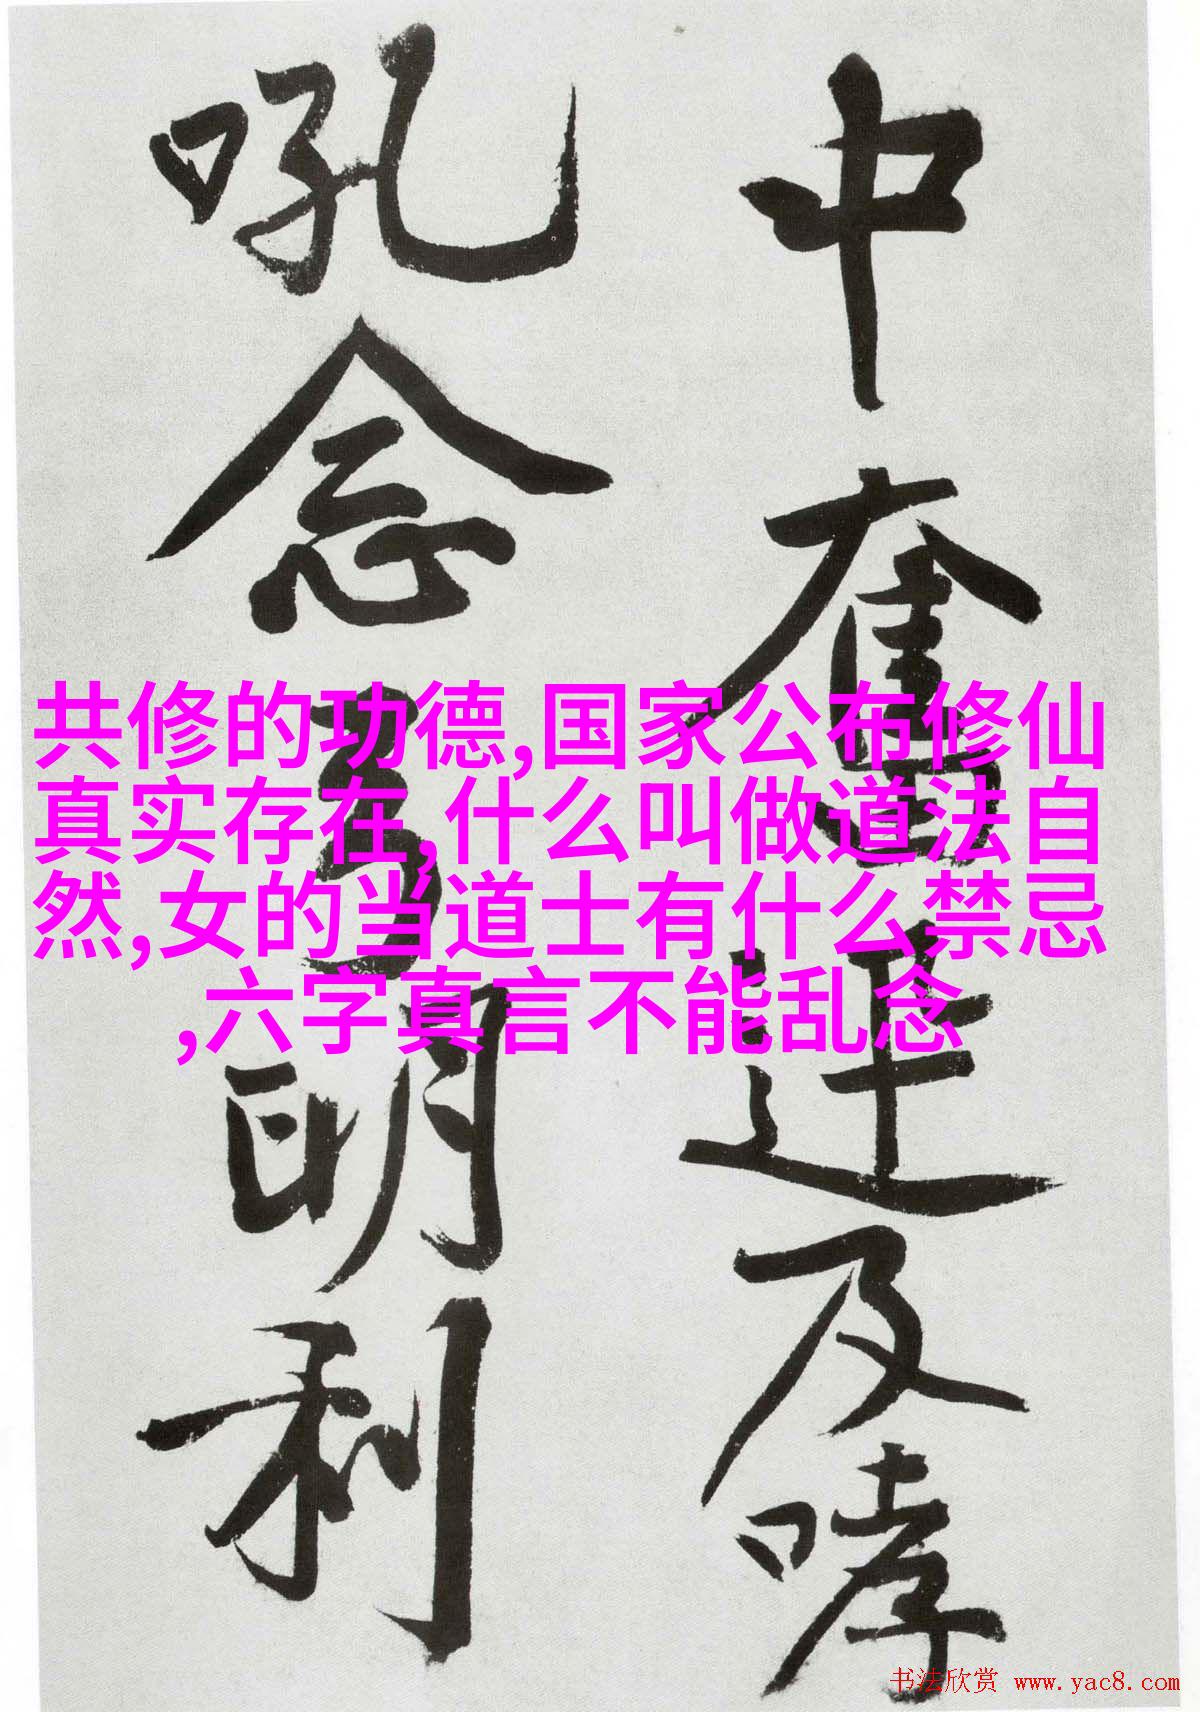 中奮迅及哮
吼念高明利
共修的功德,国家公布修仙
真实存在,什么叫做道法自
然,女的当道士有什么禁忌
,六字真言不能乱念
书法欣赏 www.yac8.com